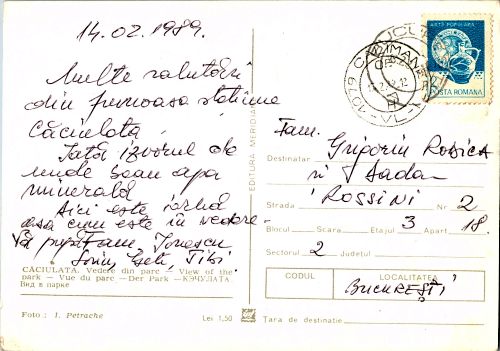 14.02.1989.
Multe salutări
din frumoasa stațiune
Căciulata.
Iată izvorul de
unde beau apa
minerală
Aici este iarnă
așa cum este în vedere-
Vă pupă Fam. Ionescu
Tibi
CĂCIULATA. Vedere din parc — View of the
park — Vue du parc — Der Park — КЭЧУЛАТА.
Вид в парке
Foto : I. Petrache
Lei 1,50
EDITURA MERIDIANE
ARTĂ POPULARĂ
POSTA ROMANA
CĂLIMANEȘTI
VL
Fam.
Destinatar Grigoriu Rodica
și Nadia
Strada ROSSINI Nr. 2
Blocul Scara Etajul 3 Apart. 18.
Sectorul 2 Județul
CODUL
LOCALITATEA
BUCUREȘTI
Țara de destinație